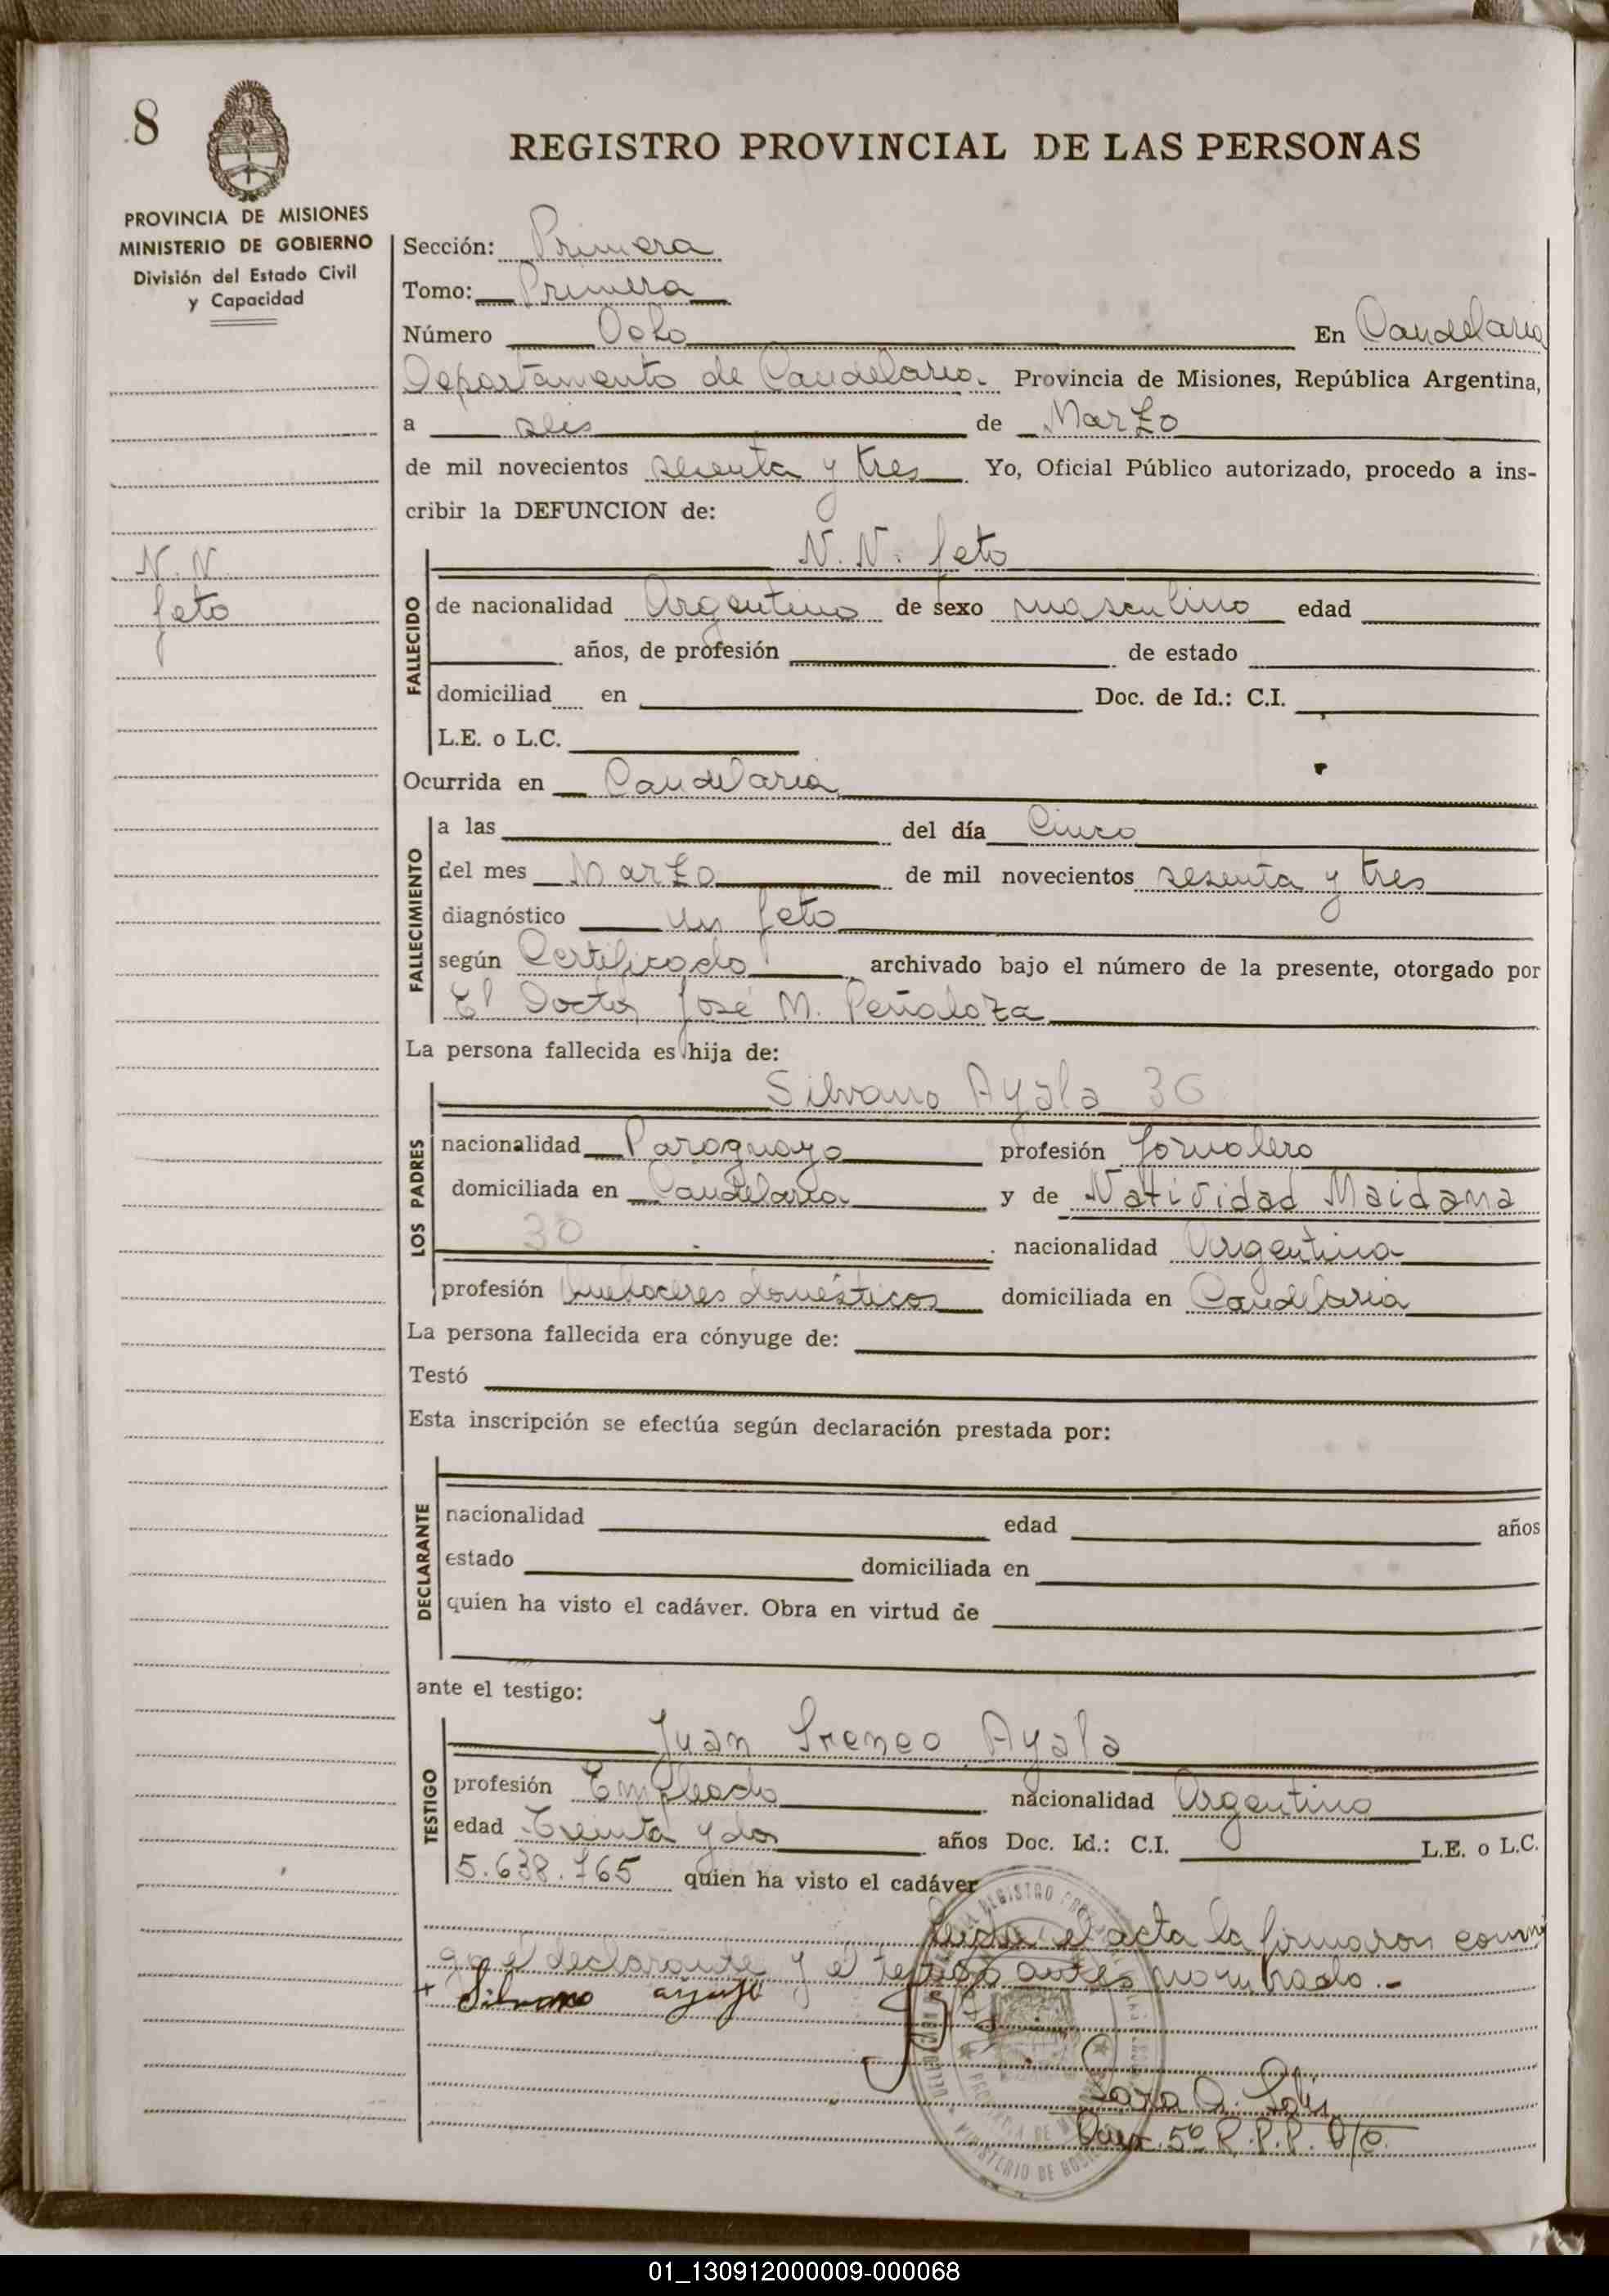 8
REGISTRO PROVINCIAL DE LAS PERSONAS
PROVINCIA DE MISIONES
MINISTERIO DE GOBIERNO
División del Estado Civil
y Capacidad
Sección: Primera
Tomo: Primera
Número Ocho En Candelaria
Departamento de Candelaria. Provincia de Misiones, República Argentina,
a seis de Marzo
de mil novecientos sesenta y tres Yo, Oficial Público autorizado, procedo a ins-
cribir la DEFUNCION de:
N. N.
feto
FALLECIDO
N. N. feto
de nacionalidad Argentino de sexo masculino edad
años, de profesión de estado
domiciliad en Doc. de Id.: C.I.
L.E. o L.C.
Ocurrida en Candelaria
FALLECIMIENTO
a las del día Cinco
del mes Marzo de mil novecientos sesenta y tres
diagnóstico un feto
según Certificado archivado bajo el número de la presente, otorgado por
El Doctor José M. Peñaloza
La persona fallecida es hija de:
LOS PADRES
Silvano Ayala 36
nacionalidad Paraguayo profesión Jornalero
domiciliada en Candelaria y de Natividad Maidana
30 nacionalidad Argentina
profesión Quehaceres domésticos domiciliada en Candelaria
La persona fallecida era cónyuge de:
Testó
Esta inscripción se efectúa según declaración prestada por:
DECLARANTE
nacionalidad edad años
estado domiciliada en
quien ha visto el cadáver. Obra en virtud de
ante el testigo:
TESTIGO
Juan Ireneo Ayala
profesión Empleado nacionalidad Argentino
edad Treinta y dos años Doc. Id.: C.I. L.E. o L.C.
5.638.765 quien ha visto el cadáver
el acta la firmaron conmi
go el declarante y el testigo antes nombrado.-
+ Silvano ayala
Sara A. Solis
5º R.P.P.
01_130912000009-000068